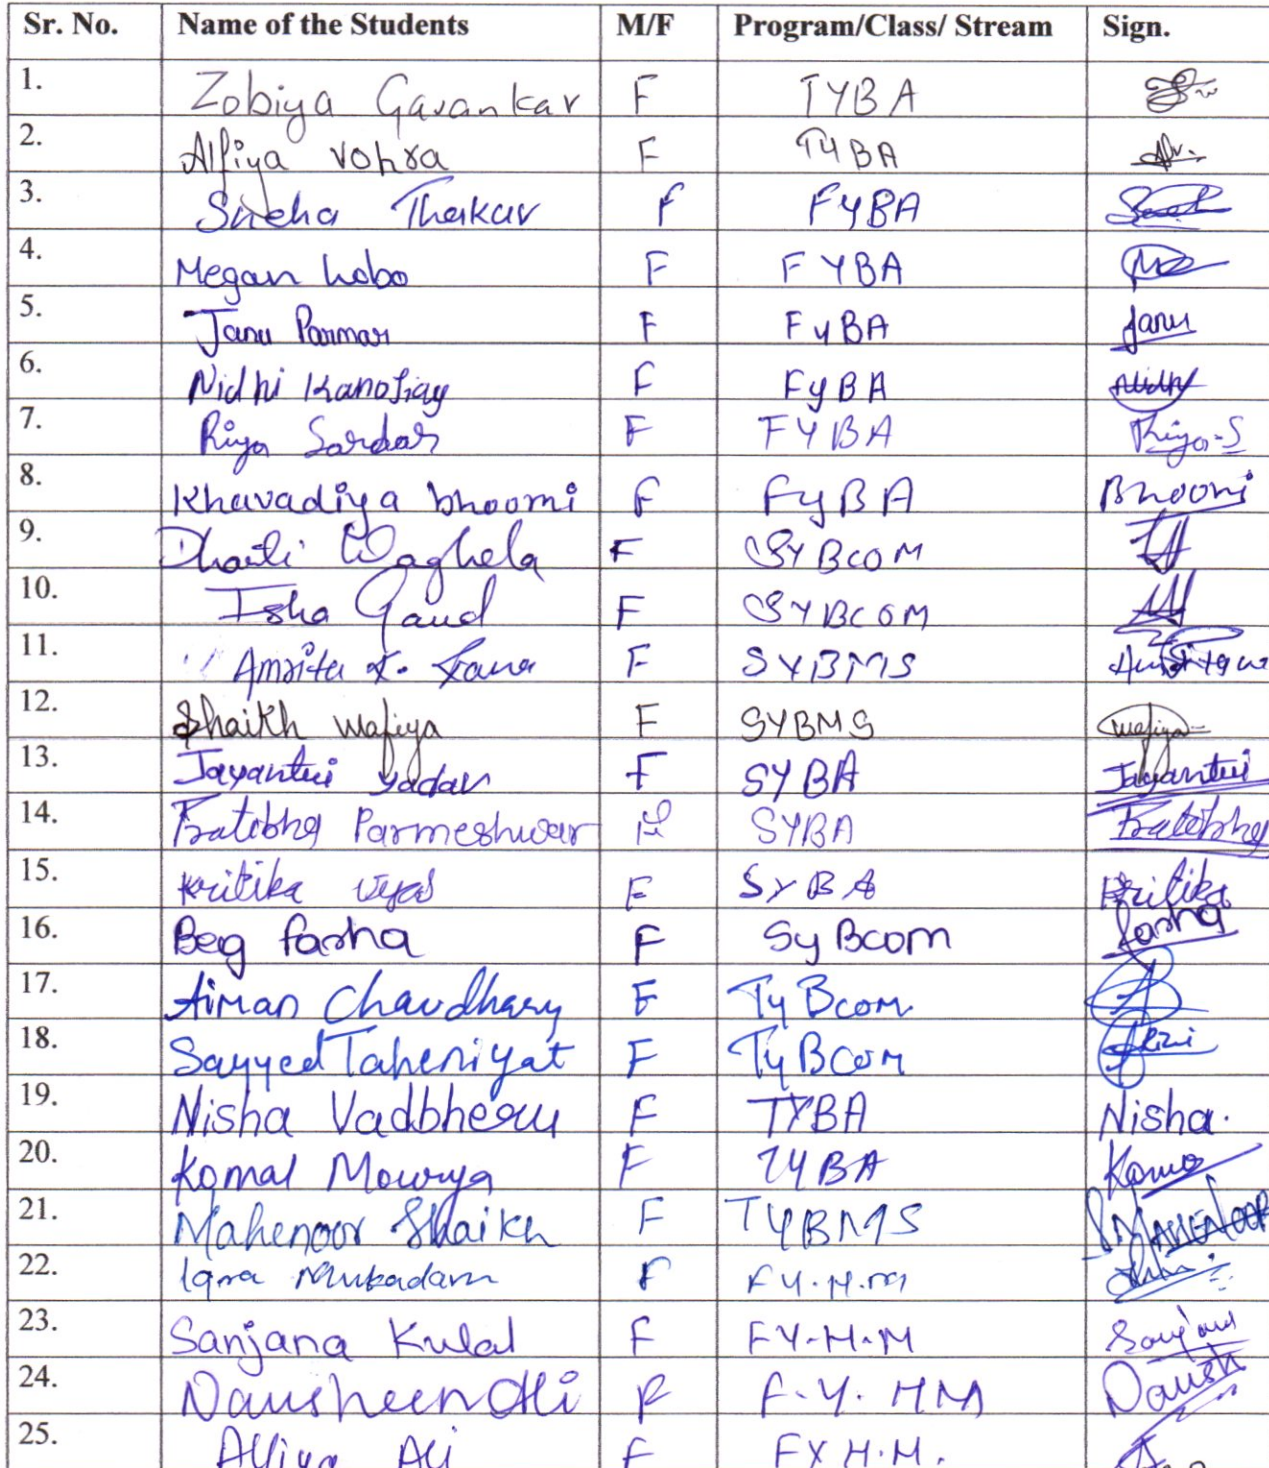 Sr. No. Name of the Students M/F Program/Class/ Stream Sign.
1. Zobiya Gavankar F TYBA
2. Alfiya Vohra F TYBA
3. Sneha Thakar F FYBA
4. Megan Lobo F FYBA
5. Janu Parmar F FyBA Janu
6. Nidhi Kanojiay F FyBA Nidhi
7. Riya Sardar F FYBA Riya-S
8. Khavadiya bhoomi F FyBA Bhoomi
9. Dhaiti Waghela F SYBCOM
10. Isha Gaud F SYBCOM
11. Amrita F SYBMS
12. Shaikh Wafiya F SYBMS Wafiya
13. Jayantri yadav F SYBA Jayantri
14. Pratibha Parmeshwar F SYBA Pratibha
15. Kritika Vyas F SYBA Kritika
16. Beg farha F SyBcom farha
17. Aiman Chaudhary F TyBcom.
18. Sayyed Taheniyat F TyBcom
19. Nisha Vadbheru F TYBA Nisha.
20. Komal Mourya F TYBA
21. Mahenoor Shaikh F TYBMS
22. Iqra Mukadam F FY.H.M
23. Sanjana Kulal F FY-H-M
24. Nausheen Ali F F.Y. HM
25. Alfiya Ali F FY H.M.